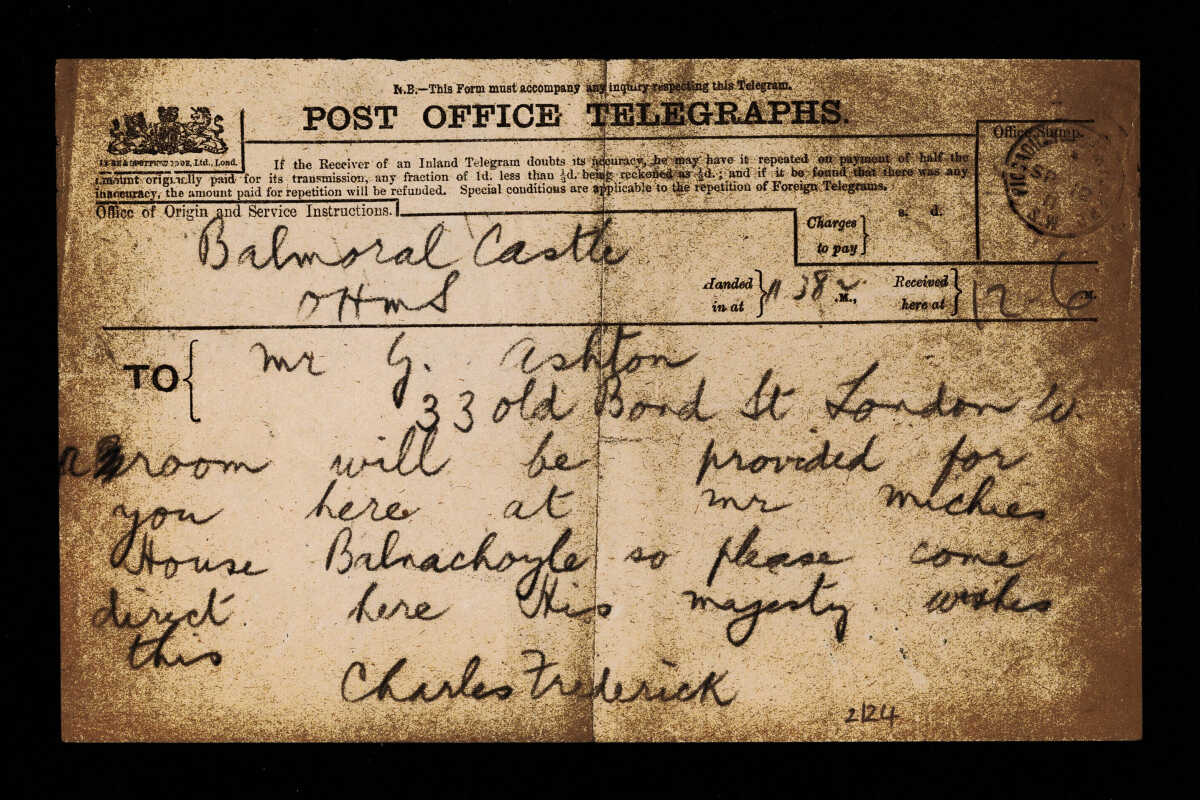 N.B.—This Form must accompany any inquiry respecting this Telegram.
POST OFFICE TELEGRAPHS.
If the Receiver of an Inland Telegram doubts its accuracy, he may have it repeated on payment of half the
amount originally paid for its transmission, any fraction of 1d. less than ½d. being reckoned as ½d.; and if it be found that there was any
inaccuracy, the amount paid for repetition will be refunded. Special conditions are applicable to the repetition of Foreign Telegrams.
Office Stamp.
Office of Origin and Service Instructions.
Charges to pay
s. d.
Balmoral Castle
OHMS
Handed in at 11 38 .M.,
Received here at 12-6 M.
TO
Mr G. Ashton
33 old Bond St London W.
a room will be provided for
you here at Mr Michies
House Balnachoyle so please come
direct here His majesty wishes
this
Charles Frederick
2124